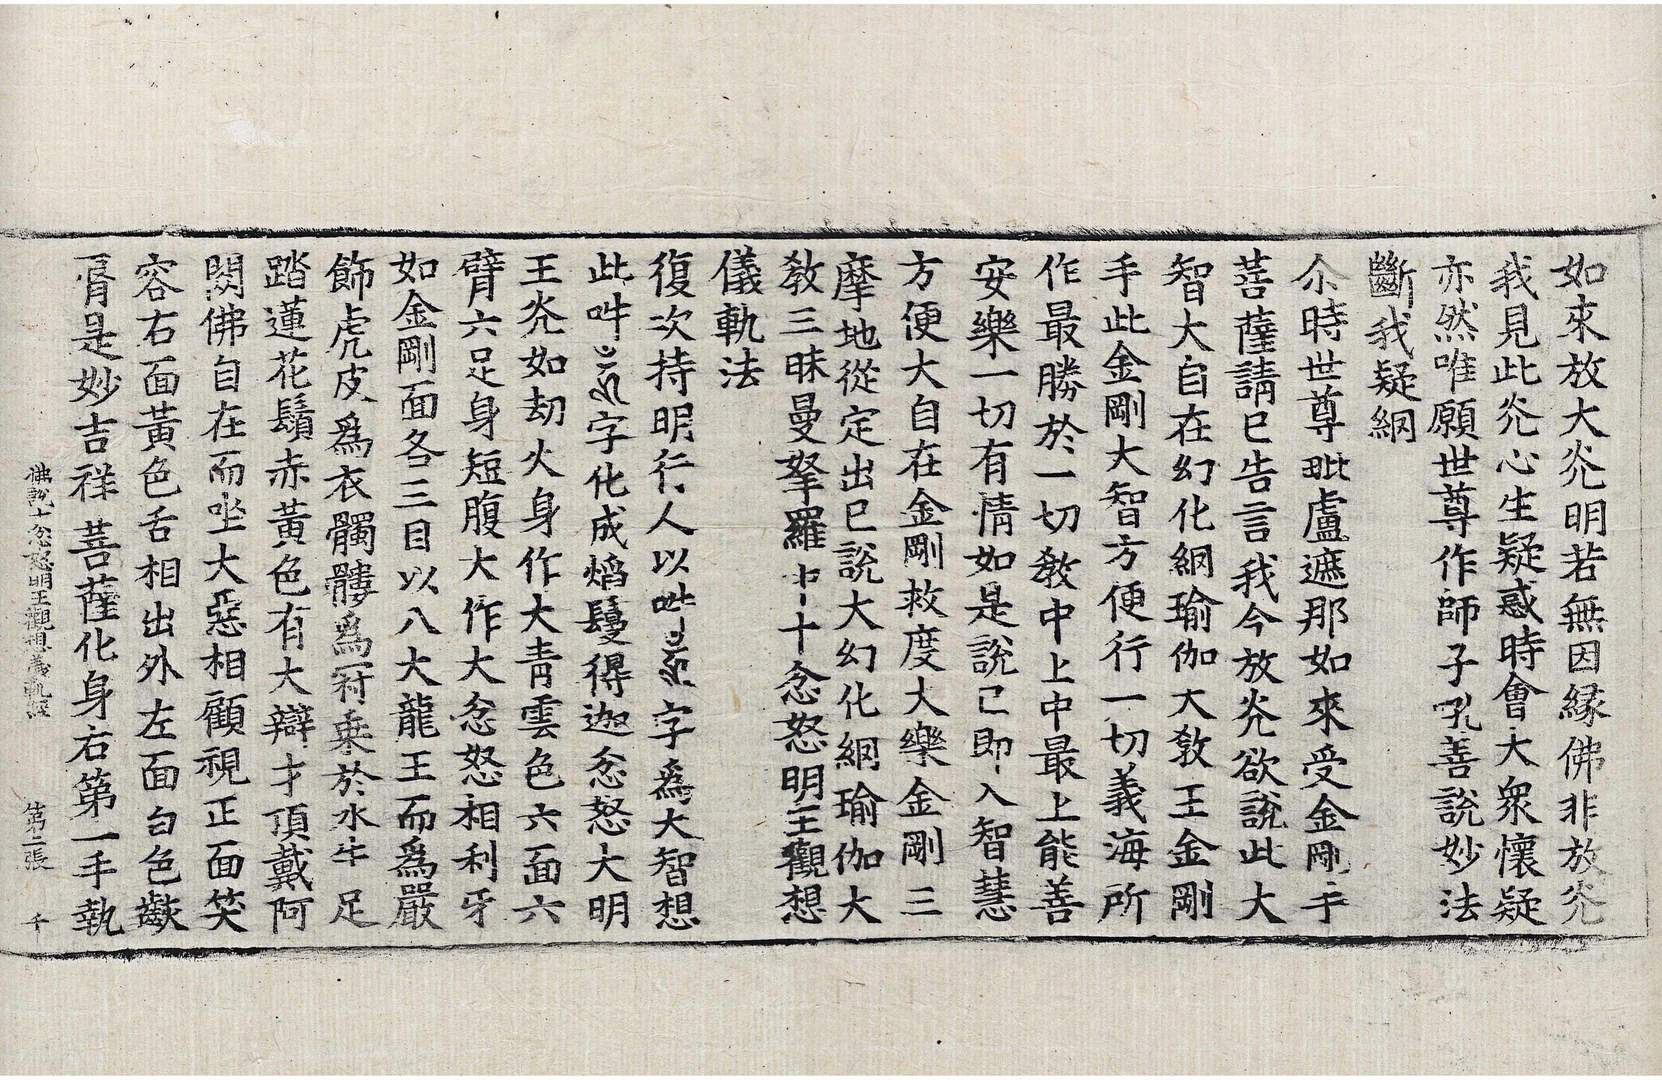 如來放大灮明若無因縁佛非放灮
我見此灮心生疑惑時會大衆懷疑
亦然唯願世尊作師子吼善說妙法
斷我疑網
尒時世尊毗盧遮那如來受金剛手
菩薩請已告言我今放灮欲說此大
智大自在幻化網瑜伽大敎王金剛
手此金剛大智方便行一切義海所
作最勝於一切敎中上中最上能善
安樂一切有情如是說已即入智慧
方便大自在金剛救度大樂金剛三
摩地從定出已說大幻化網瑜伽大
敎三昧曼拏羅中十忿怒明王觀想
儀軌法
復次持明行人以吽字爲大智想
此吽字化成焰鬘得迦忿怒大明
王灮如劫火身作大青雲色六面六
臂六足身短腹大作大忿怒相利牙
如金剛面各三目以八大龍王而爲嚴
飾虎皮爲衣髑髏爲冠乗於水牛足
踏蓮花鬚赤黄色有大辯才頂戴阿
閦佛自在而坐大惡相顧視正面笑
容右面黄色舌相出外左面白色齩
脣是妙吉祥菩薩化身右第一手執
佛說十忿怒明王觀想儀軌經 第二張 千